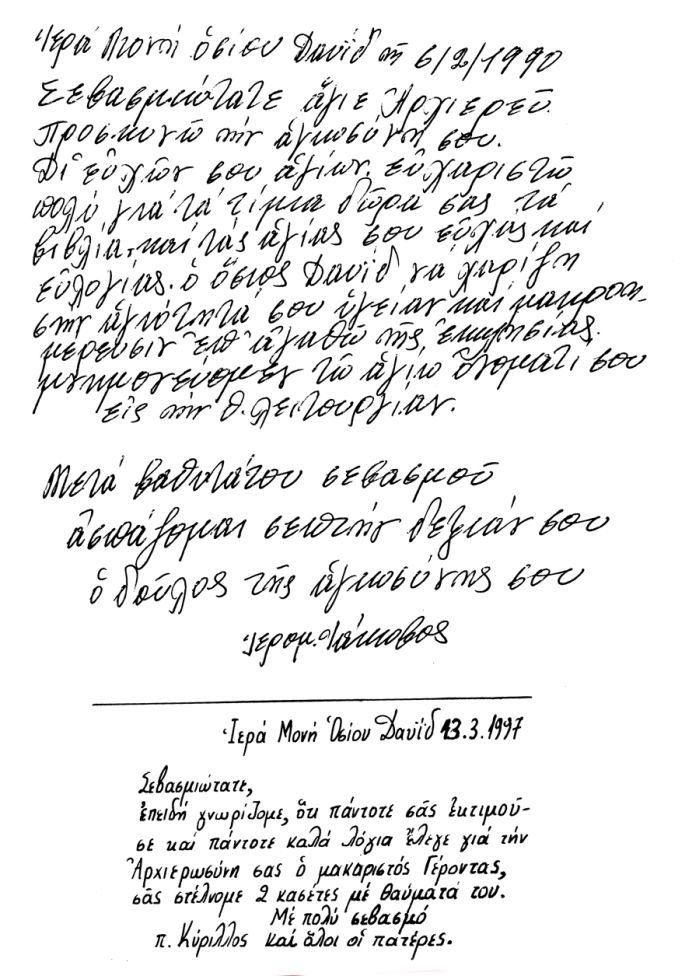 Ἱερά Μονή ὁσίου Δαυΐδ τῇ 6/2/1990
Σεβασμιώτατε ἅγιε Ἀρχιερεῦ.
Προσκυνῶ τήν ἁγιωσύνη σου.
Δι᾽ εὐχῶν σου ἁγίων. εὐχαριστῶ
πολύ γιά τά τίμια δῶρα σας τά
βιβλία, καί τάς ἁγίας σου εὐχάς καί
εὐλογίας. ὁ ὅσιος Δαυΐδ νά χαρίζη
στήν ἁγιότητά σου ὑγείαν καί μακροη-
μέρευσιν ἐπ᾽ ἀγαθῶ τῆς ἐκκλησίας.
μνημονεύομεν τῶ ἁγίω ὀνοματι σου
εἰς τήν θ. λειτουργίαν.
Μετά βαθυτάτου σεβασμοῦ
ἀσπάζομαι σεπτήν δεξιάν σου
ὁ δοῦλος τῆς ἁγιωσύνης σου
Ἱερομ. Ἰάκωβος
Ἱερά Μονή Ὁσίου Δαυΐδ 13.3.1997
Σεβασμιώτατε,
ἐπειδή γνωρίζομε, ὅτι πάντοτε σᾶς ἐκτιμοῦ-
σε καί πάντοτε καλά λόγια ἔλεγε γιά τήν
Ἀρχιερωσύνη σας ὁ μακαριστός Γέροντας,
σᾶς στέλνομε 2 κασέτες μέ θαύματά του.
Μέ πολύ σεβασμό
π. Κύριλλος καί ὅλοι οἱ πατέρες.